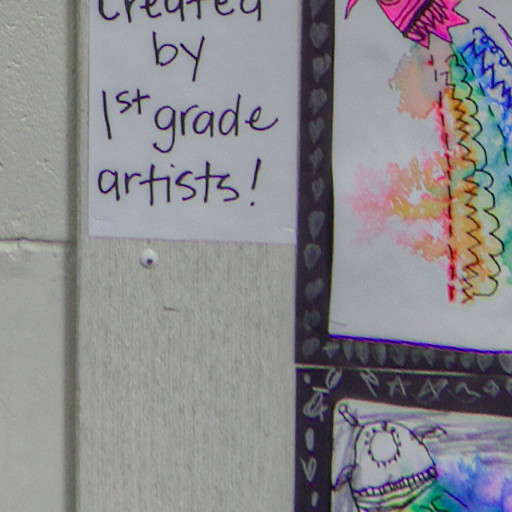 Created
by
1st grade
artists!